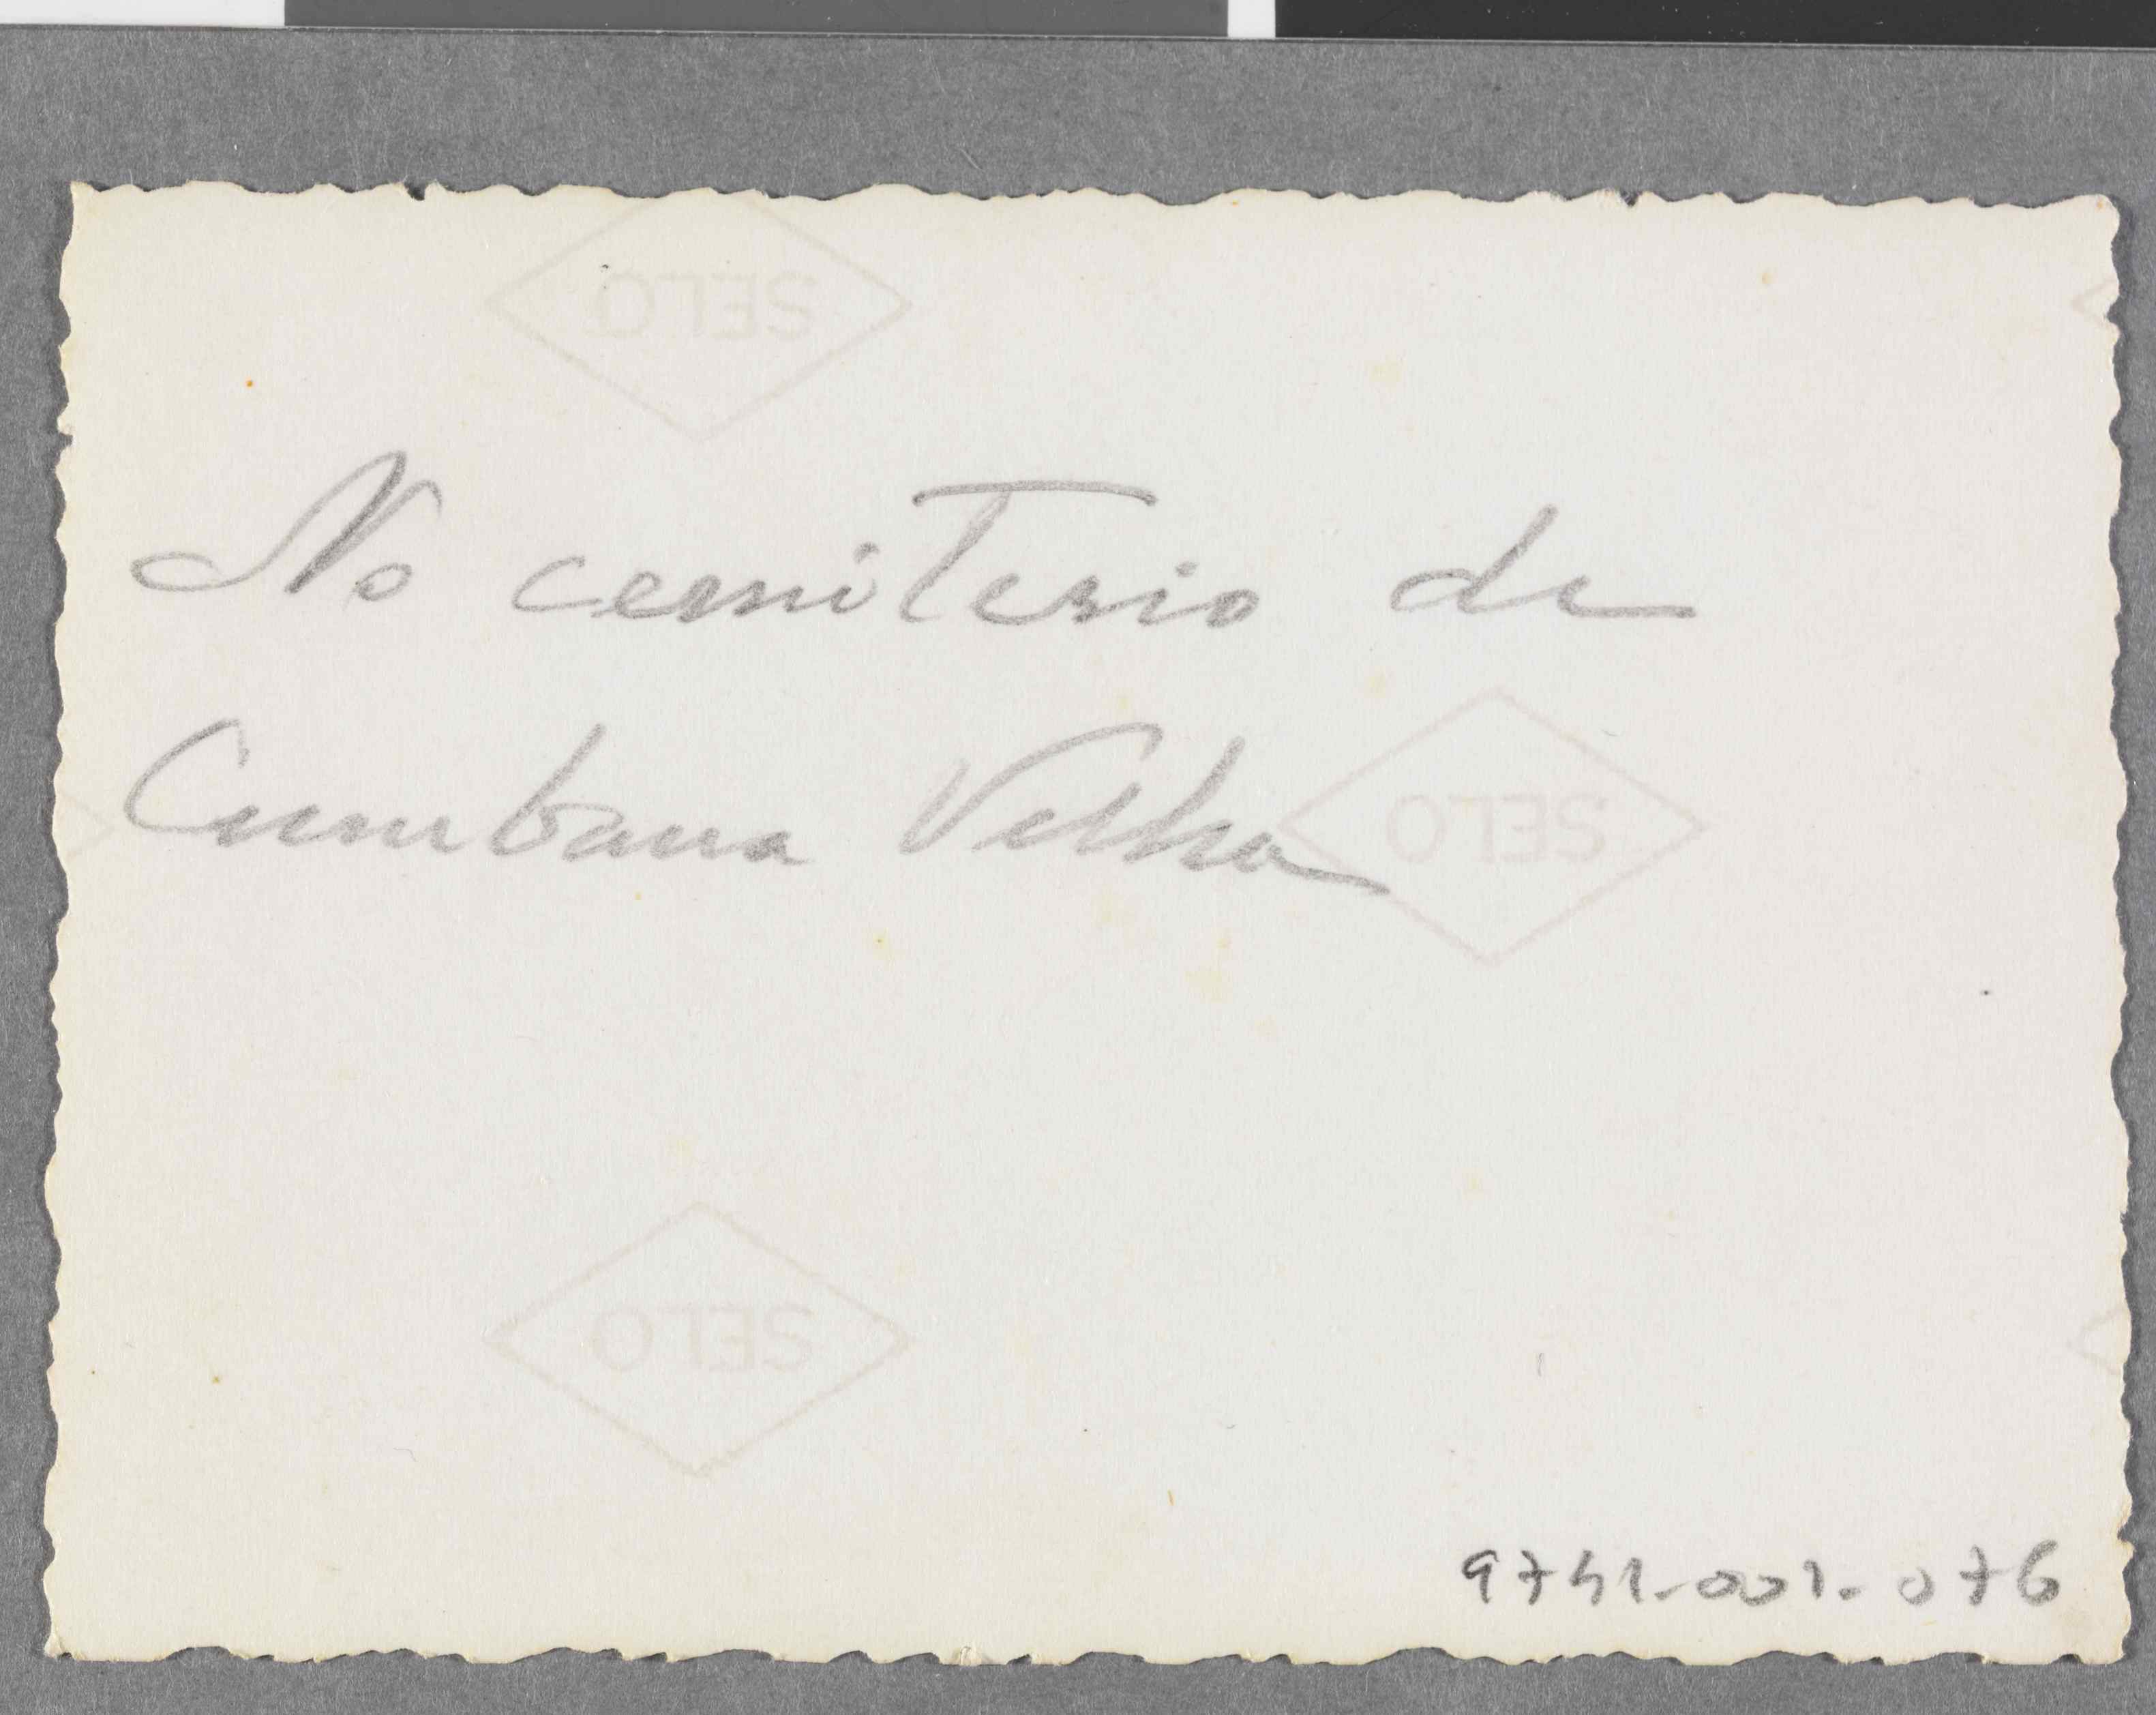 SELO
No cemiterio de
Cumbana Velha
SELO
SELO
9741-001-076